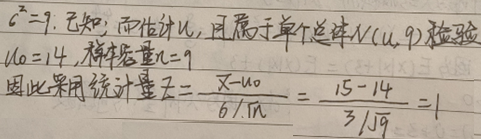 σ²=9.已知,而估计u,且属于单个总体N(u,9)检验
u₀=14,样本容量n=9
因此采用统计量Z=\frac{x̄-u₀}{σ/√n}=\frac{15-14}{3/√9}=1